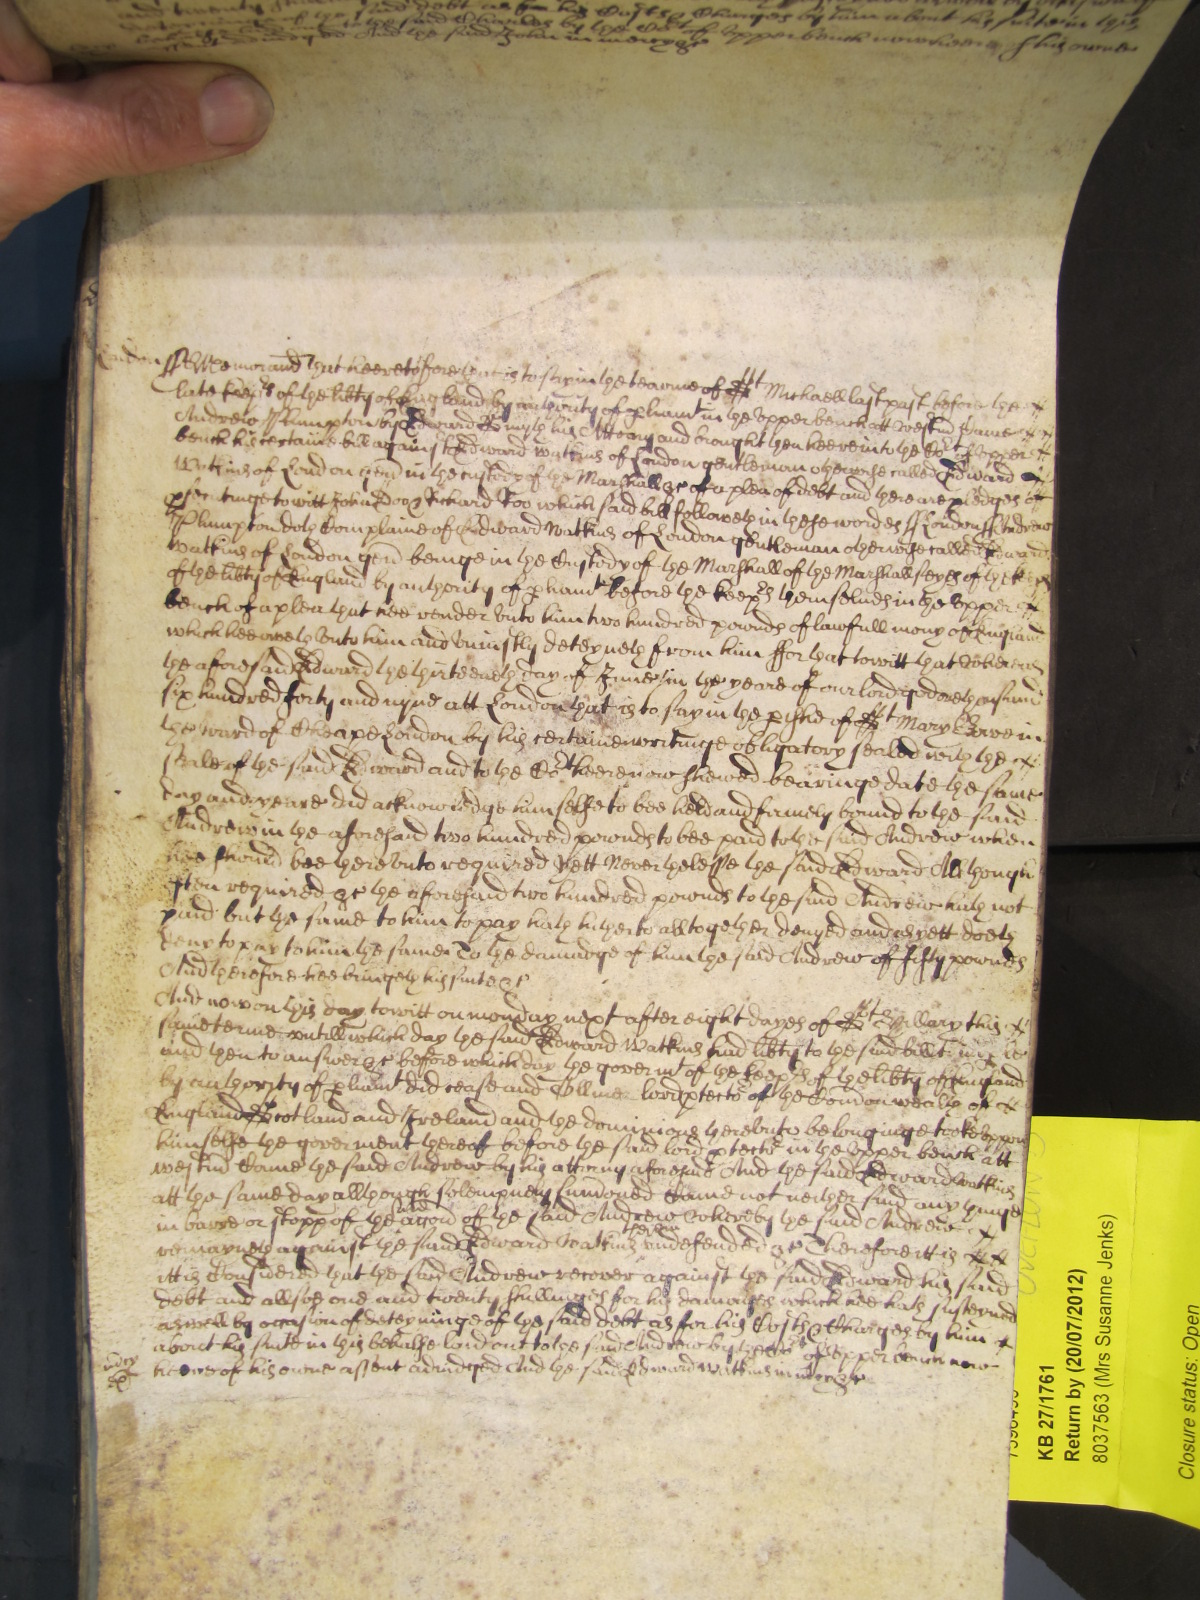 and twenty
the said debt as for his Costs & Charges by him about his suite in this
the said Charles by the Co^rt of upper bench now heere of his owne
And the said John in mercy &c
London ss Memorand That heeretofore that is to say in the tearme of S^t Michaell last past before the
late keep^rs of the lib^ty of England by authority of parliam^t in the upper bench att Westm^r Came
Andrew Plumpton by Edward Smyth his Attorny and brought then heere into the Co^rt of upper
bench his certaine bill against Edward Watkins of London gentleman otherwise called Edward
Watkins of London gent in the custody of the Marshall &c of a plea of debt and there are pledges of
psecutinge to witt John Doo & Richard Roo which said bill followeth in these wordes ss London ss Andrew
Plumpton doth Complaine of Edward Watkins of London gentleman otherwise called Edward
Watkins of London gent beinge in the Custody of the Marshall of the Marshallseyes of the keep^rs
of the lib^ty of England by authority of parliam^t before the keep^rs themselves in the upper
bench of a plea that hee render unto him two hundred pownds of lawfull mony of England
which hee oweth unto him and uniustly deteyneth from him ffor that to witt that whereas
the aforesaid Edward the thirteenth day of June in the yeare of our lord god one thousand
six hundred forty and nyne att London that is to say in the pishe of S^t Mary Bowe in
the ward of Cheape London by his certaine writinge obligatory sealed with the
seale of the said Edward and to the Co^rt heere now shewed bearinge date the same
day and yeare did acknowledge himselfe to bee held and firmely bound to the said
Andrew in the aforesaid two hundred pownds to bee paid to the said Andrew when
hee should bee thereunto required Yett Neverthelesse the said Edward Although
often required &c the aforesaid two hundred pownds to the said Andrew hath not
paid but the same to him to pay hath hitherto alltogether denyed and as yett doeth
deny to pay to him the same To the damadge of him the said Andrew of fifty pownds
And therefore hee bringeth his suite &c
And now on this day to witt on monday next after eight dayes of S^t Hillary this
same terme untill which day the said Edward Watkins had lib^ty to the said bill to imple
and then to answer &c before which day the governm^t of the keep^rs of the lib^ty of England
by authority of parliam^t did cease and Oliver lord ptecto^r of the Comonwealth of
England Scotland and Ireland and the dominions thereunto belonginge tooke uppon
himselfe the goverment thereof before the said lord ptecto^r in the upper bench att
Westm^r Came the said Andrew by his attorny aforesaid And the said Edward Watkins
att the same day allthough solempnely sumoned Came not neither said any thinge
in barre or stopp of the said accon of the said Andrew whereby the said Andrew
remayneth against the said Edward Watkins therein undefended &c Therefore itt is
itt is Considered that the said Andrew recover against the said Edward his said
debt and allsoe one and twenty shillings for his damages which hee hath susteyned
aswell by occasion of deteyninge of the said debt as for his Costs & Charges by him
about his suite in this behalfe laid out to the said Andrew by the Co^rt of upper bench now
heere of his owne assent adiudged And the said Edward Watkins in mercy &c
KB 27/1761
Return by (20/07/2012)
8037563 (Mrs Susanne Jenks)
Closure status: Open